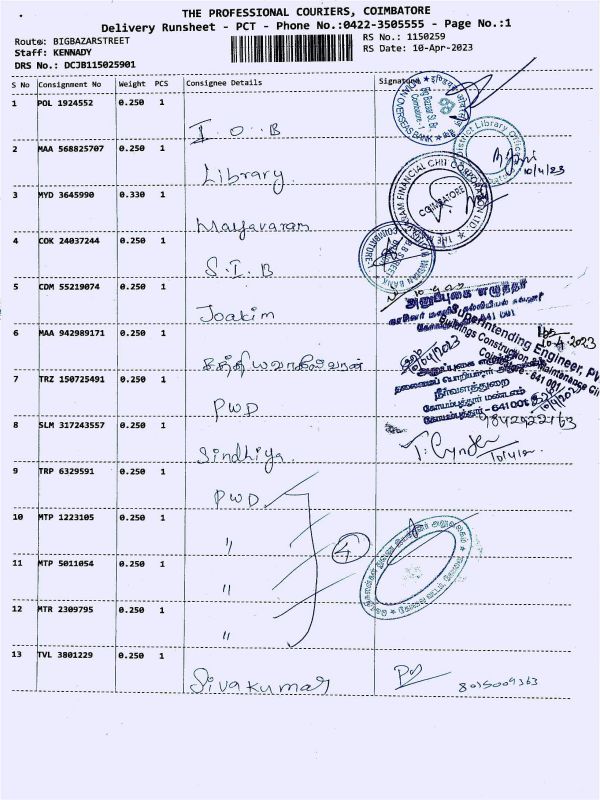 THE PROFESSIONAL COURIERS, COIMBATORE
Delivery Runsheet - PCT - Phone No.:0422-3505555 - Page No.:1
Route: BIGBAZARSTREET
RS No.: 1150259
Staff: KENNADY
RS Date: 10-Apr-2023
DRS No.: DCJB115025901
S No Consignment No Weight PCS Consignee Details Signature
1 POL 1924552 0.250 1
I O B
INDIAN OVERSEAS BANK
Big Bazaar St. Br.
Coimbatore - 1
2 MAA 568825707 0.250 1
Library
District Library Office
10/4/23
3 MYD 3645990 0.330 1
Mayavaram
FINANCIAL CHIT CORPORATION LTD
COIMBATORE
4 COK 24037244 0.250 1
S.I.B
INDIAN BANK
COIMBATORE
5 CDM 55219074 0.250 1
Joakim
அனுப்புகை எழுத்தர்
641 001
6 MAA 942989171 0.250 1
Superintending Engineer,
Buildings Construction & Maintenance
10/4/2023
Coimbatore - 641 001
7 TRZ 150725491 0.250 1
PWD
தலைமைப் பொறியாளர்
நீர்வளத்துறை
கோயம்புத்தூர் மண்டலம்
கோயம்புத்தூர் - 641001
8 SLM 317243557 0.250 1
Sindhiya
9842522163
9 TRP 6329591 0.250 1
PWD
10 MTP 1223105 0.250 1
"
4
11 MTP 5011054 0.250 1
"
12 MTR 2309795 0.250 1
"
13 TVL 3801229 0.250 1
Sivakumar
8015009363